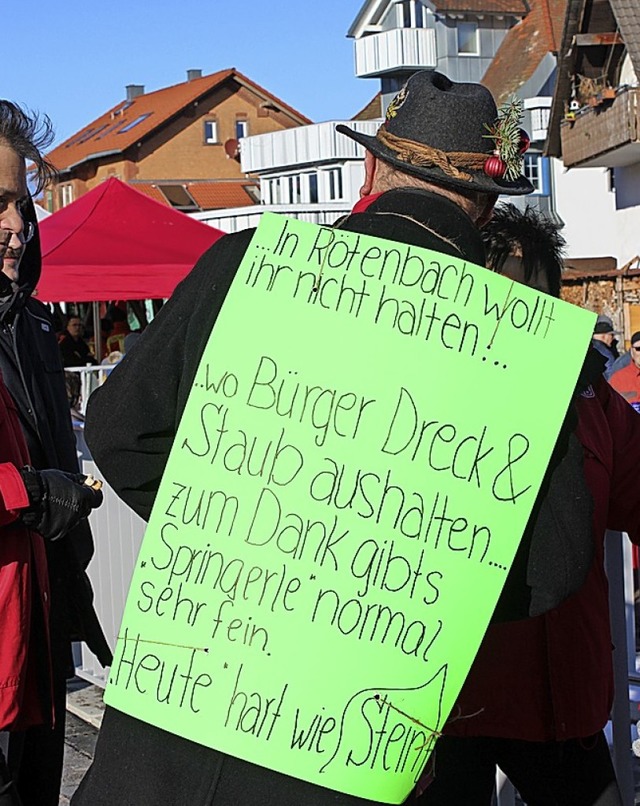 ...In Rötenbach wollt
ihr nicht halten!..
..wo Bürger Dreck &
Staub aushalten....
zum Dank gibts
„Springerle" normal
sehr fein.
„Heute" hart wie Stein!